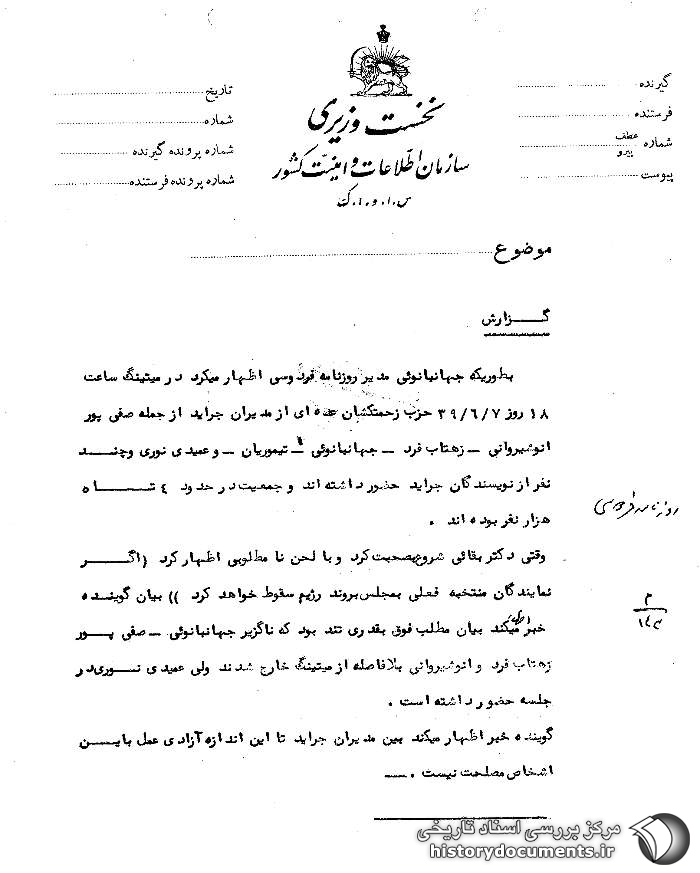 گیرنده
فرستنده
شماره عطف پیرو
پیوست
نخست وزیری
سازمان اطلاعات و امنیت کشور
س.ا.و.ا.ک
تاریخ
شماره
شماره پرونده گیرنده
شماره پرونده فرستنده
موضوع
گزارش
بطوریکه جهانبانوئی مدیر روزنامه فردوسی اظهار میکرد در میتینگ ساعت
۱۸ روز ۳۹/۶/۷ حزب زحمتکشان عده ای از مدیران جراید از جمله صفی پور
انوشیروانی - زهتاب فرد - جهانبانوئی - تیموریان - و عمیدی نوری و چند
نفر از نویسندگان جراید حضور داشته اند و جمعیت در حدود ٤ تا ه
هزار نفر بوده اند .
وقتی دکتر بقائی شروع بصحبت کرد و با لحن نا مطلوبی اظهار کرد (( اگر
نمایندگان منتخبه فعلی بمجلس بروند رژیم سقوط خواهد کرد )) بیان گوینده
خبر اظهار میکند بیان مطلب فوق بقدری تند بود که ناگزیر جهانبانوئی - صفی پور
زهتاب فرد و انوشیروانی بلافاصله از میتینگ خارج شدند ولی عمیدی نوری در
جلسه حضور داشته است .
گوینده خبر اظهار میکند بین مدیران جراید تا این اندازه آزادی عمل باین
اشخاص مصلحت نیست .
روزنامه فردوسی
م
۱۴۳
مرکز بررسی اسناد تاریخی
historydocuments.ir